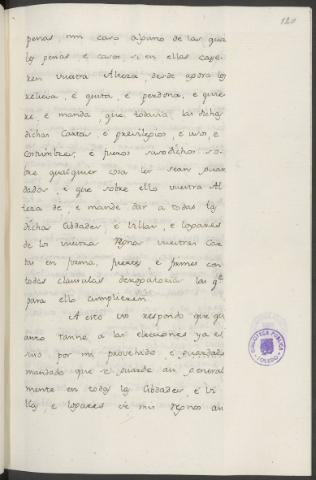 120
penas nin caso alguno de las qua
les penas, e casos si en ellas caye
ren vuestra Alteza desde agora los
relieva, e quita, e perdona, e quie
re, e manda, que todavia las dichas
dichas Cartas e previlegios, e uso, e
costumbres, e fueros susodichos so
bre qualquier cosa les sean guar
dados, e que sobre ello vuestra Al
teza dé, e mande dar a todas las
dichas Cibdades, e Villas, e logares
de los vuestros Regnos vuestras Car
tas en forma, fuertes e firmes con
todas clausulas derogatorias las qe
para ello cumplieren
A esto vos respondo que qu
anto tanne a las elecciones ya es
tá por mi provehido, e guardado
mandado que se guarde asi general
mente en todas las Cibdades, e Vi
llas, e logares de mis regnos asi
BIBLIOTECA PUBLICA
TOLEDO